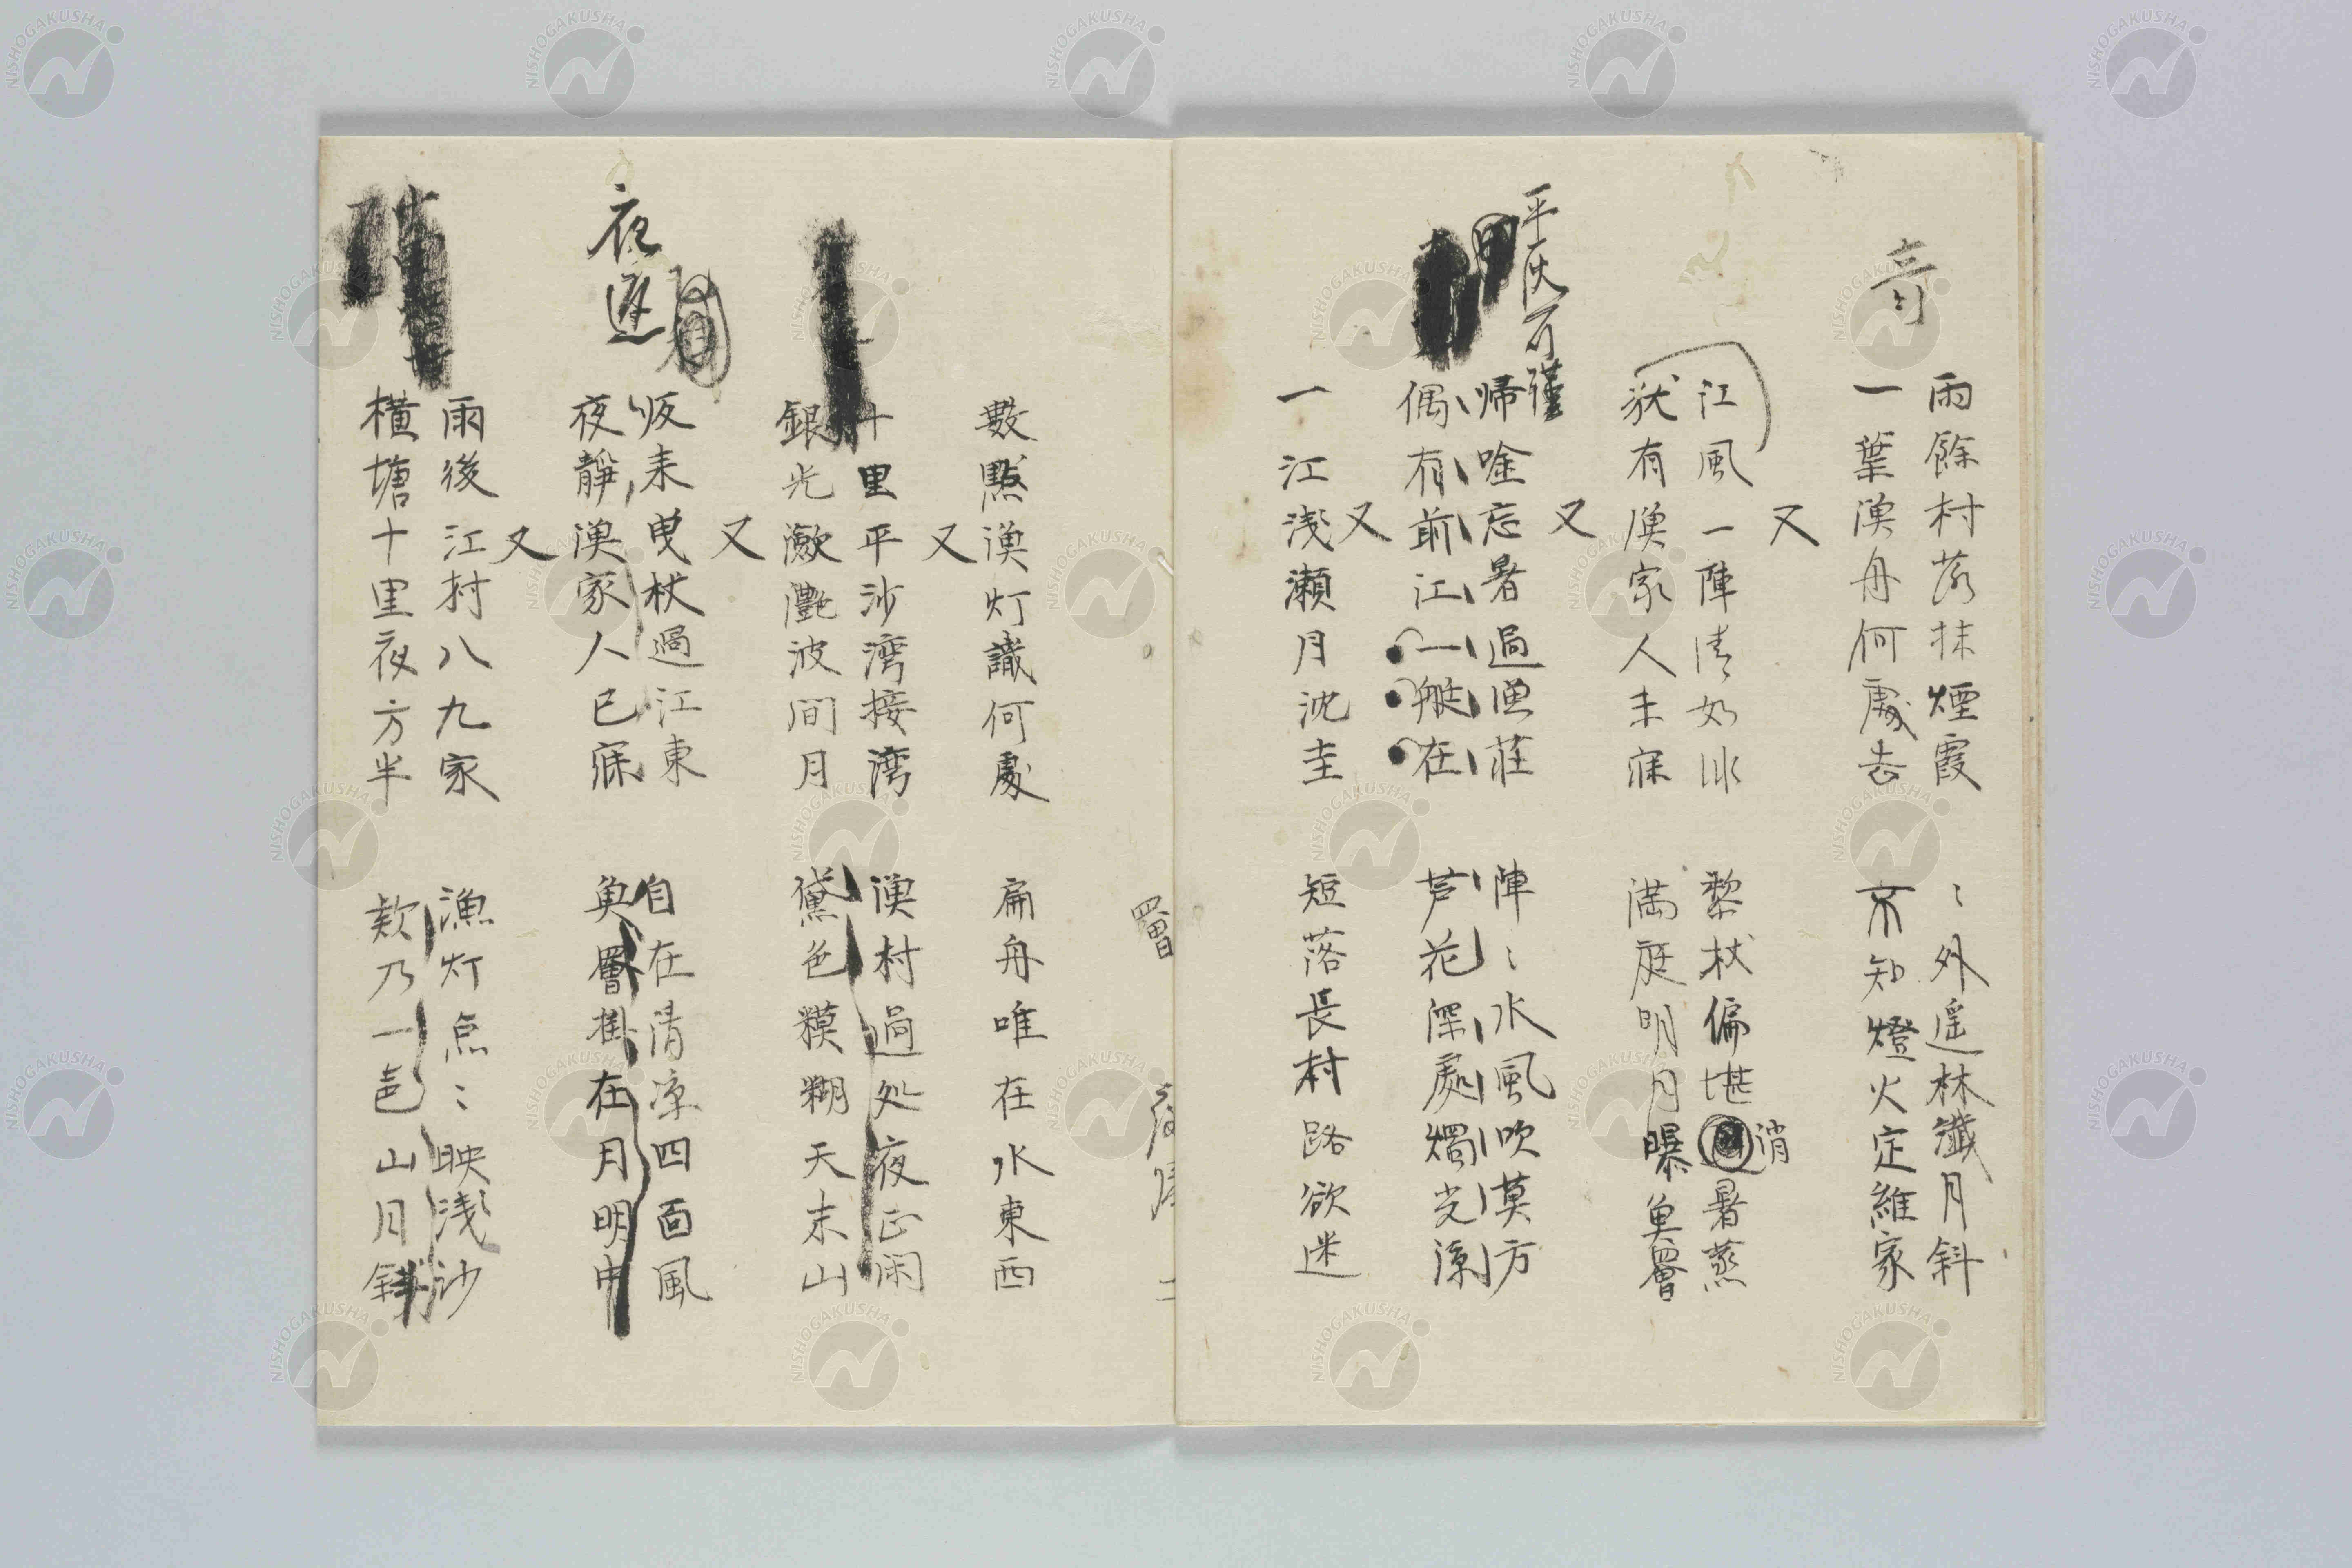 奇
雨餘村落抹煙霞 〻外遥林纖月斜
一葉漁舟何處去 不知燈火定維家
又
江風一陣清如氷 黎杖偏堪消暑蒸
猶有漁家人未寐 満庭明月曝魚罾
又
平灰可謹
帰唫忘暑過漁荘 陣〻水風吹莫方
偶有前江一艇在 芦花深處燭光涼
又
一江浅瀬月沈圭 短落長村路欲迷
罾
數點漁灯識何處 扁舟唯在水東西
又
十里平沙湾接湾 漁村過処夜正閑
銀光瀲灔波間月 黛色糢糊天末山
又
夜遅
皈来曳杖過江東 自在清凉四面風
夜静漁家人已寐 魚罾掛在月明中
又
雨後江村八九家 漁灯点〻映浅沙
横塘十里夜方半 欵乃一邑山月斜
NISHOGAKUSHA